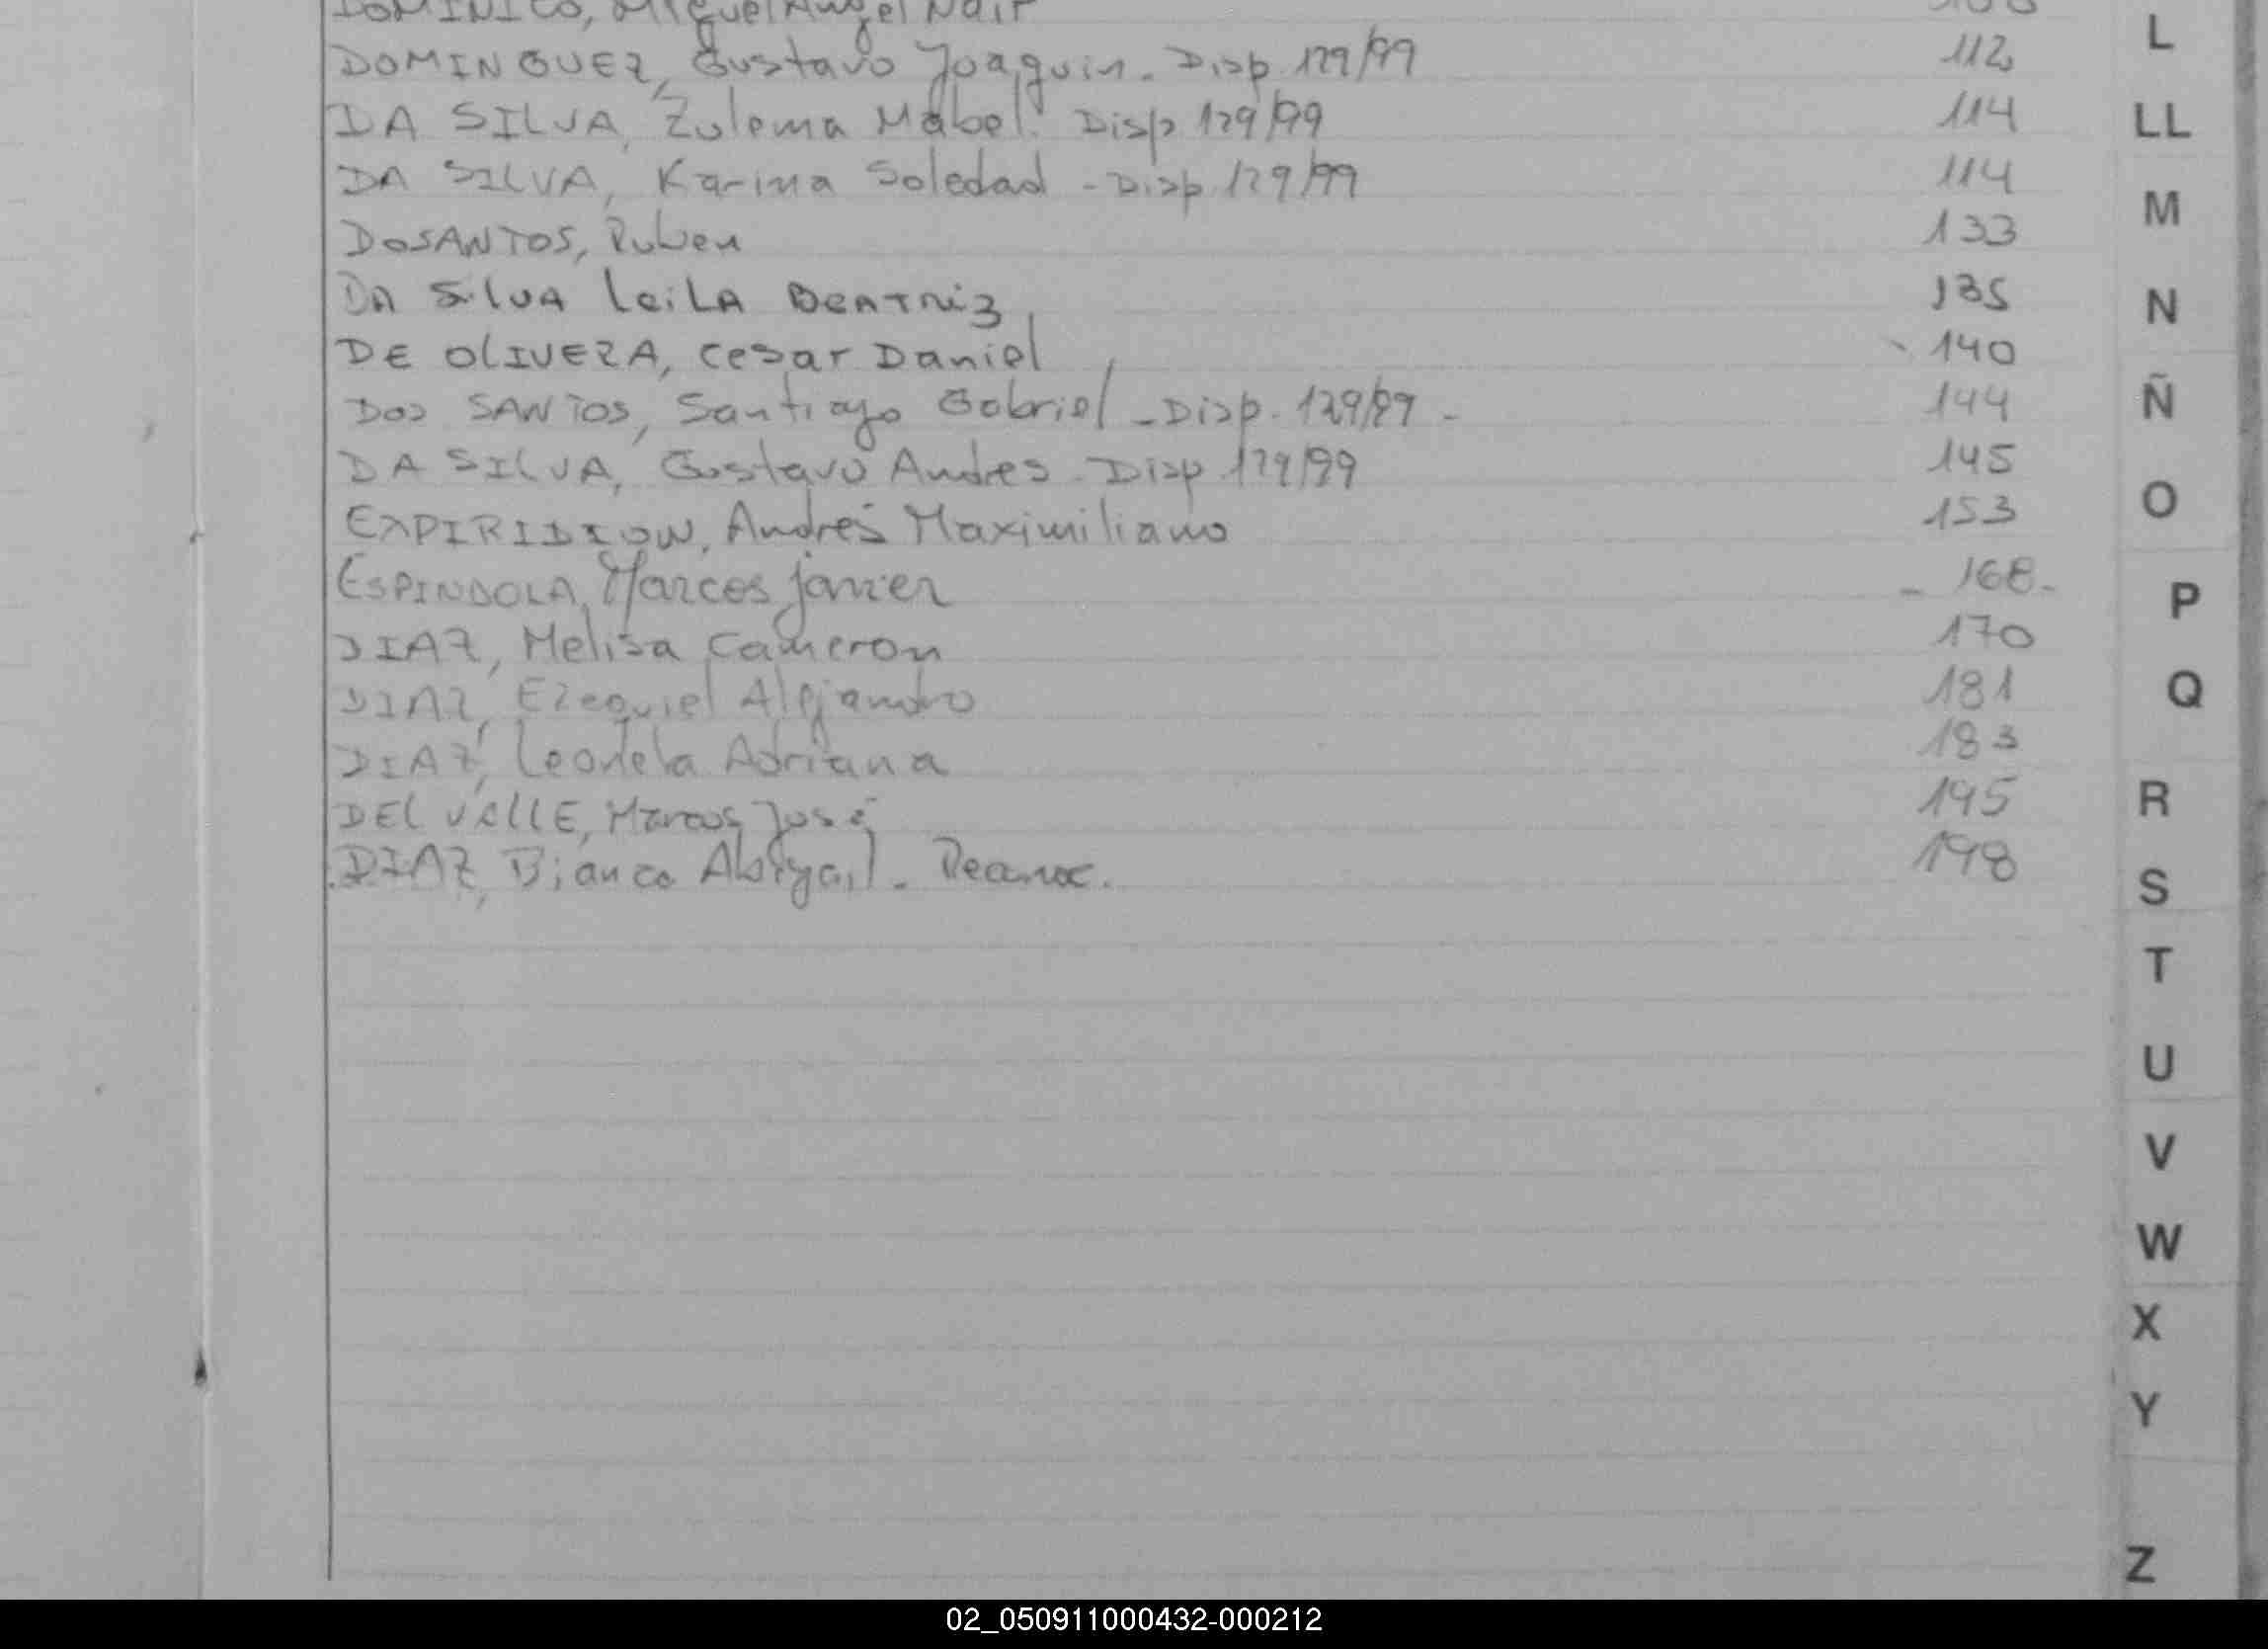 DOMINICO, Miguel Angel Nair
DOMINGUEZ, Gustavo Joaquin. Disp 129/99 112
DA SILVA, Zulema Mabel. Disp 129/99 114
DA SILVA, Karina Soledad - Disp 129/99 114
DOSANTOS, Ruben 133
DA SilVA LeiLA BeATriz 135
DE OLIVERA, Cesar Daniel 140
Dos SANTOS, Santiago Gabriel - Disp. 129/99 - 144
DA SILVA, Gustavo Andres - Disp 129/99 145
EXPIRIDION, Andrés Maximiliano 153
ESPINDOLA, Marcos Javier - 168 -
DIAZ, Melisa Cameron 170
DIAZ, Ezequiel Alejandro 181
DIAZ, Leodela Adriana 183
DEL VALLE, Marcos José 195
DIAZ, Bianca Abigail - 198
L
LL
M
N
Ñ
O
P
Q
R
S
T
U
V
W
X
Y
Z
02_050911000432-000212